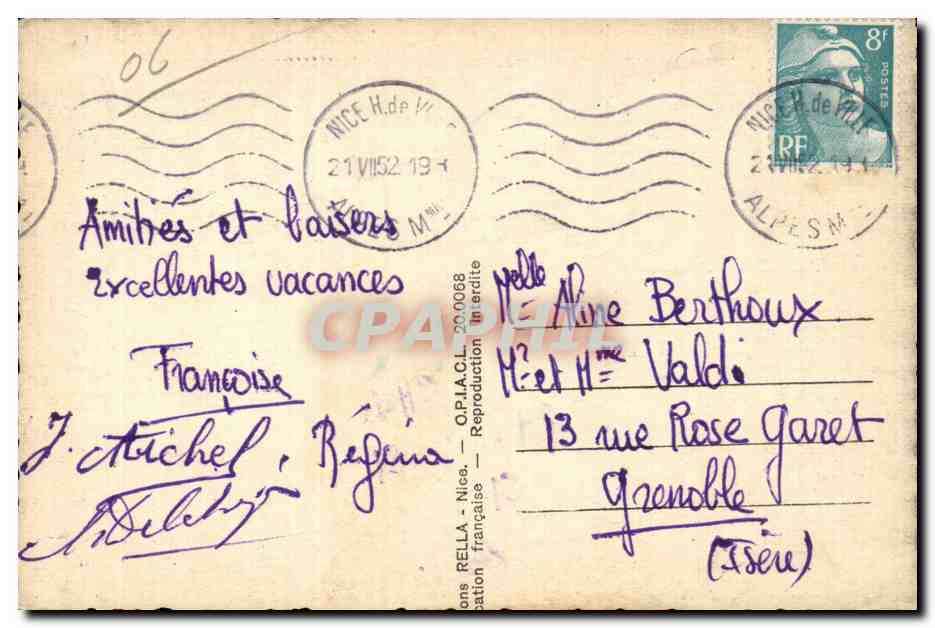 06
NICE H. de VILLE
21 VII 52 19
ALPES Mme
NICE H. de VILLE
21 VII 52 19
ALPES M
8f
POSTES
RF
Amitiés et baisers
Excellentes vacances
Françoise
J. Michel, Régina
ons RELLA - Nice. — O.P.I.A.C.L. 20.0068
cation française — Reproduction interdite
CPAPHIL
Melle Aline Berthoux
Mr et Mme Valdi
13 rue Rose Garet
Grenoble
(Isère)